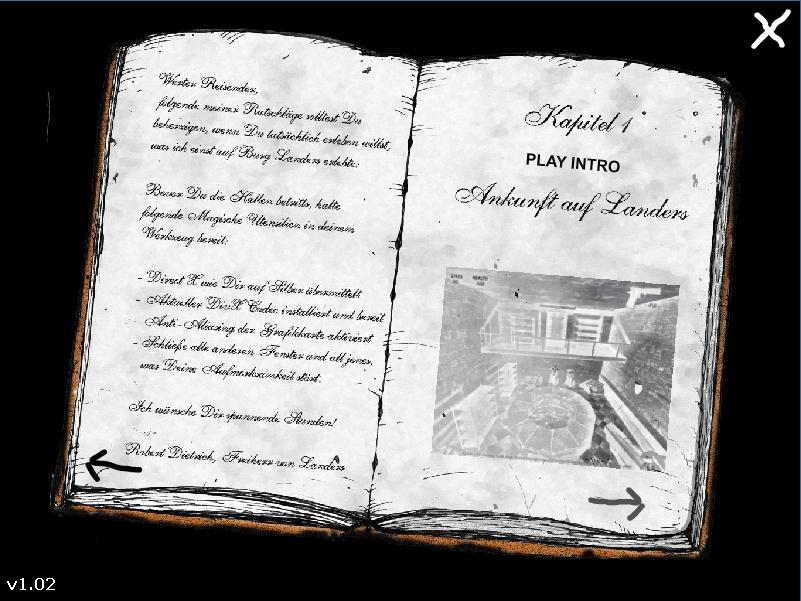 Werter Reisender,
folgende meiner Ratschläge solltest Du
beherzigen, wenn Du tatsächlich erleben willst,
was ich einst auf Burg Landers erlebte:
Bevor Du die Hallen betritts, halte
folgende Magische Utensilien in deinem
Werkzeug bereit:
- Direct X wie Dir auf Silber übermittelt
- Aktueller DivX Codec installiert und bereit
- Anti-Aliasing der Grafikkarte aktiviert
- Schließe alle anderen Fenster und all jener,
was Deine Aufmerksamkeit stört.
Ich wünsche Dir spannende Stunden!
Robert Dietrich, Freiherr von Landers
Kapitel 1
PLAY INTRO
Ankunft auf Landers
v1.02